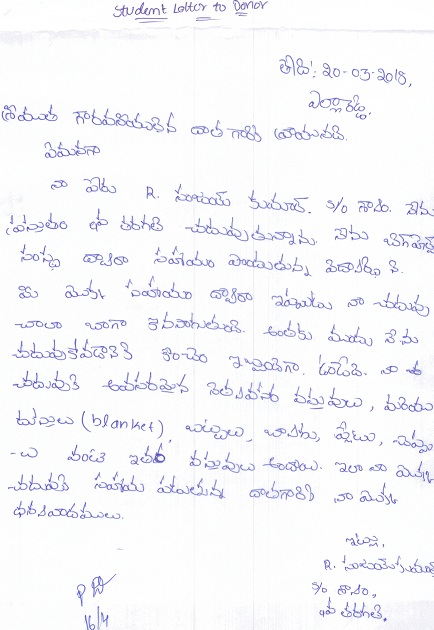 Student Letter to Donor
తేది: 20-03-2018,
ఎల్లారెడ్డి.
శ్రీయుత గౌరవనీయులైన దాత గారికి వ్రాయునది.
ఏమనగా
నా పేరు R. సంజయ్ కుమార్. S/o శాంతం. నేను
ప్రస్తుతం 9వ తరగతి చదువుతున్నాను. నేను
సంస్థ ద్వారా సహాయం పొందుతున్న విద్యార్థి ని.
మీ యొక్క సహాయం ద్వారా ఇప్పుడు నా చదువు
చాలా బాగా కొనసాగుతుంది. అంతకు ముందు నేను
చదువుకోవడానికి కొంచెం ఇబ్బందిగా ఉండేది. నా
చదువుకి అవసరమైన నిత్యావసర వస్తువులు, మరియు
దుప్పట్లు (blanket), బట్టలు, బ్యాగు, ప్లేటు, చెప్పు
-లు వంటి ఇతర వస్తువులు అందాయి. ఇలా నా యొక్క
చదువుకి సహాయ పడుతున్న దాతగారికి నా యొక్క
ధన్యవాదములు.
ఇట్లు,
R. సంజయ్ కుమార్
S/o శాంతం,
9వ తరగతి.
16/4